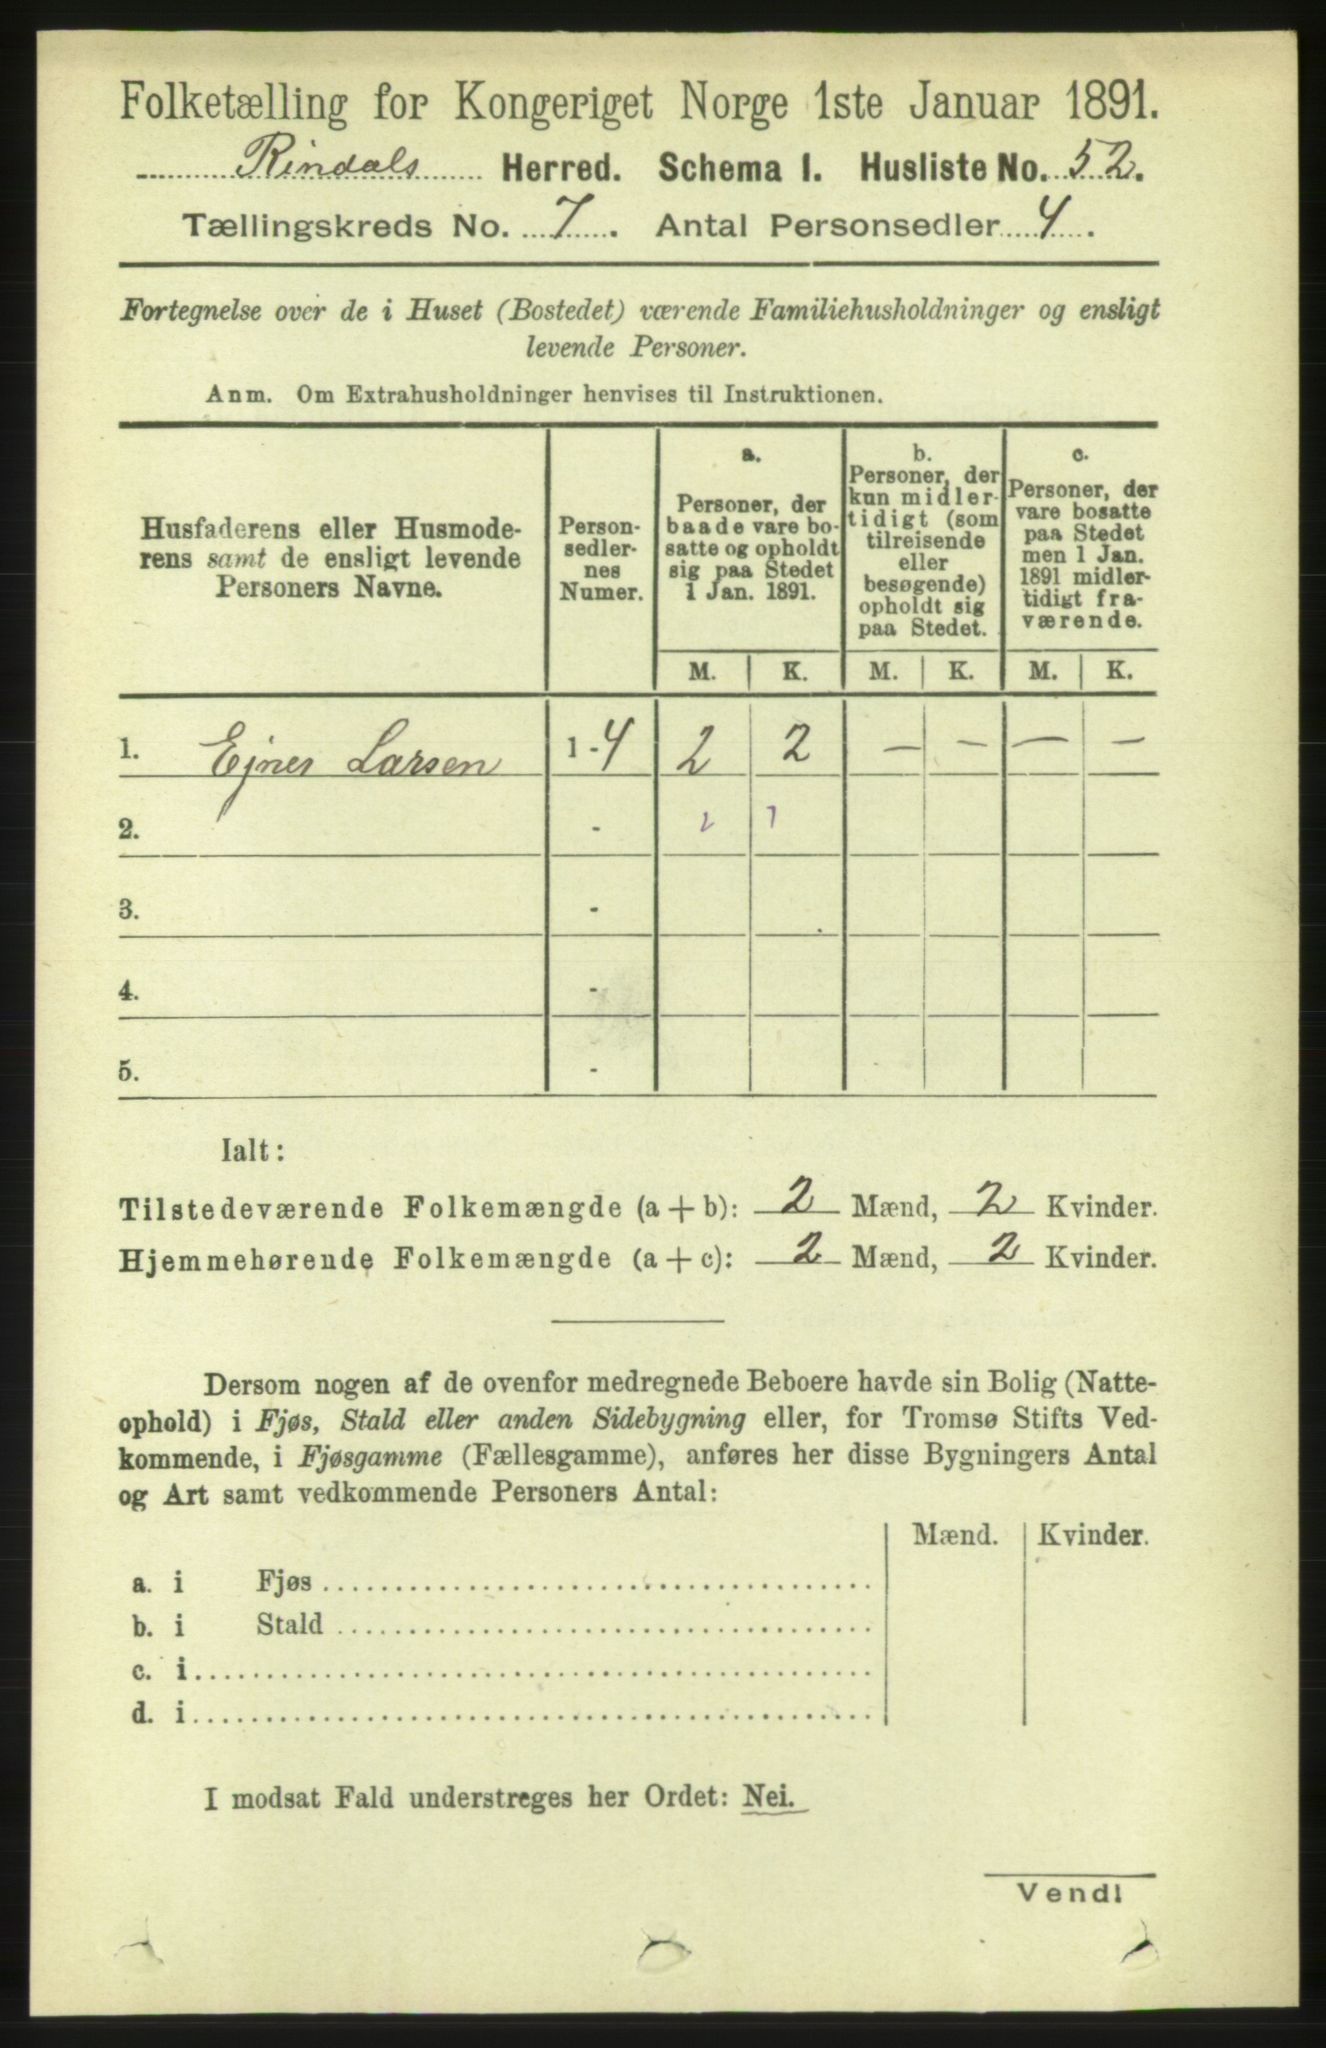 Folketælling for Kongeriget Norge 1ste Januar 1891.
Rindals Herred. Schema I. Husliste No. 52.
Tællingskreds No. 7. Antal Personsedler 4.
Fortegnelse over de i Huset (Bostedet) værende Familiehusholdninger og ensligt
levende Personer.
Anm. Om Extrahusholdninger henvises til Instruktionen.
Husfaderens eller Husmode-
rens samt de ensligt levende
Personers Navne.
Person-
sedler-
nes
Numer.
a.
Personer, der
baade vare bo-
satte og opholdt
sig paa Stedet
1 Jan. 1891.
b.
Personer, der
kun midler-
tidigt (som
tilreisende
eller
besøgende)
opholdt sig
paa Stedet.
c.
Personer, der
vare bosatte
paa Stedet
men 1 Jan.
1891 midler-
tidigt fra-
værende.
M. K. M. K. M. K.
1. Ejner Larsen 1-4 2 2 - - - -
2. - 2 1
3. -
4. -
5. -
Ialt:
Tilstedeværende Folkemængde (a+b): 2 Mænd, 2 Kvinder.
Hjemmehørende Folkemængde (a+c): 2 Mænd, 2 Kvinder.
Dersom nogen af de ovenfor medregnede Beboere havde sin Bolig (Natte-
ophold) i Fjøs, Stald eller anden Sidebygning eller, for Tromsø Stifts Ved-
kommende, i Fjøsgamme (Fællesgamme), anføres her disse Bygningers Antal
og Art samt vedkommende Personers Antal:
Mænd. Kvinder.
a. i Fjøs
b. i Stald
c. i
d. i
I modsat Fald understreges her Ordet: Nei.
Vend!